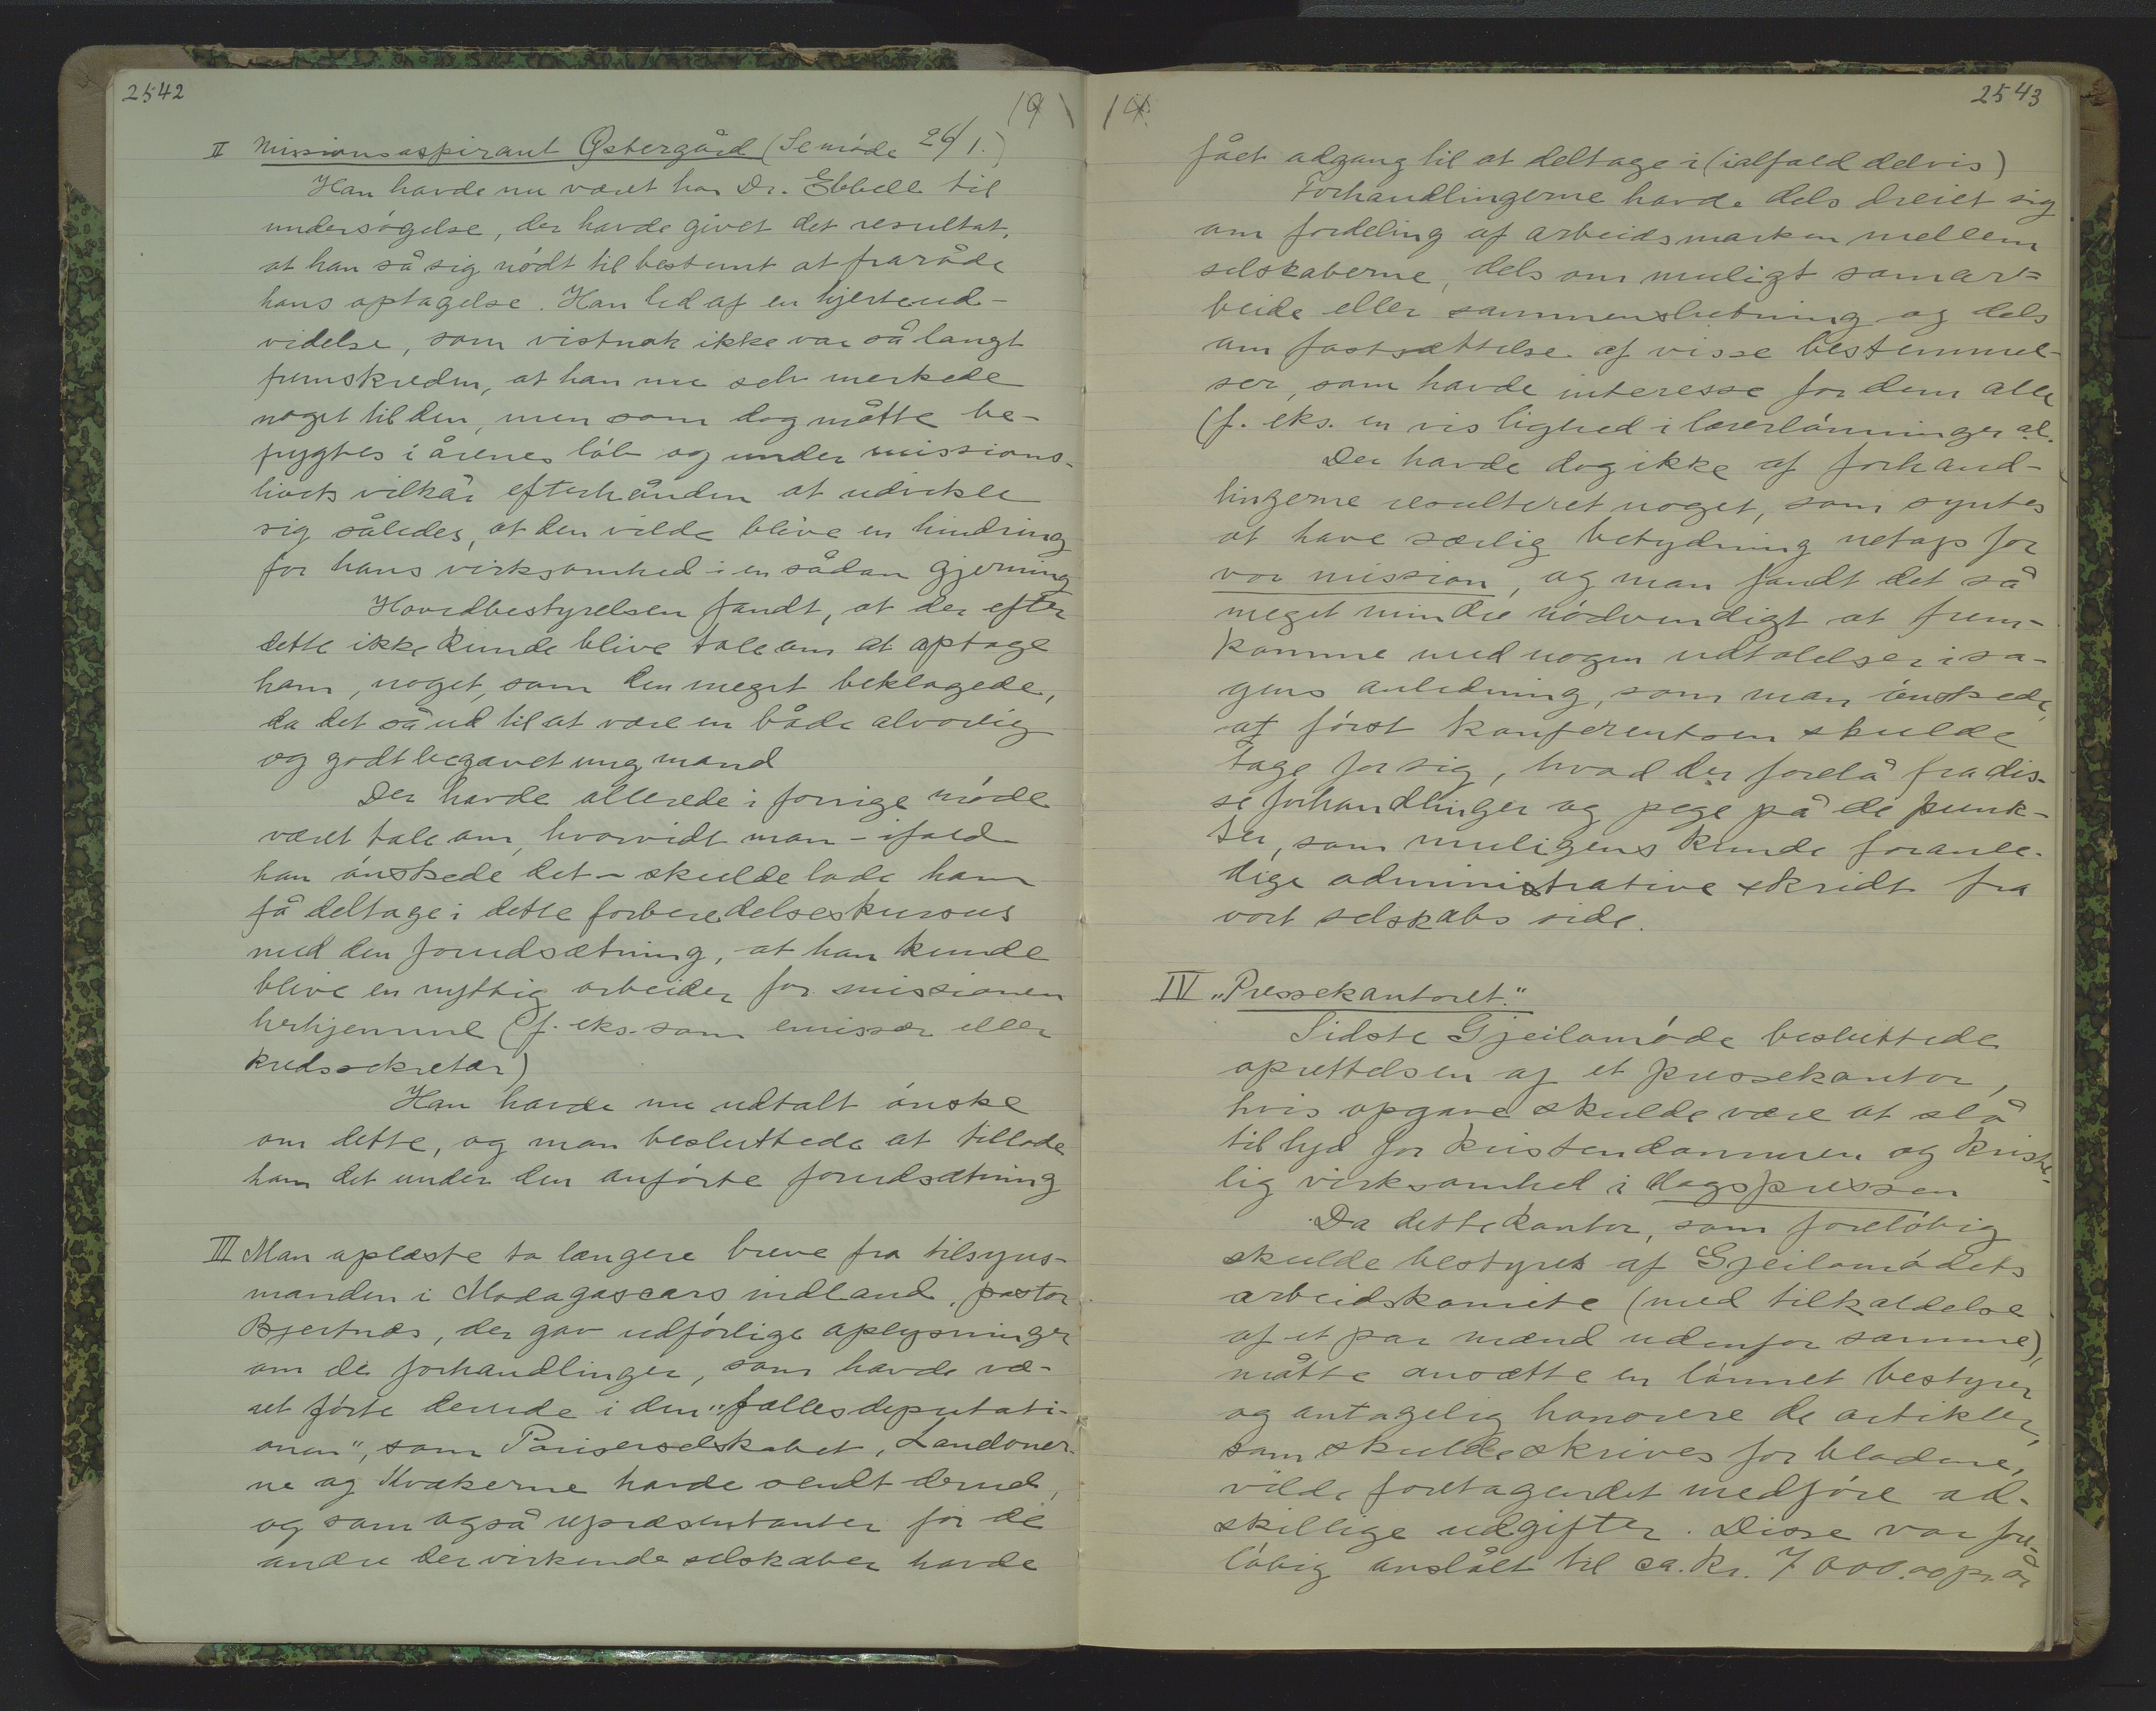 2542
19
II Missionsaspirant Østergård (Se møde 26/1.)
Han havde nu været hos Dr. Ebbell til
undersøgelse, der havde givet det resultat,
at han så sig nødt til bestemt at fraråde
hans optagelse. Han led af en hjerteud-
videlse, som vistnok ikke var så langt
fremskreden, at han nu selv merkede
noget til den, men som dog måtte be-
frygtes i årenes løb og under missions-
livets vilkår efterhånden at udvikle
sig således, at den vilde blive en hindring
for hans virksomhed i en sådan gjerning
Hovedbestyrelsen fandt, at der efter
dette ikke kunde blive tale om at optage
ham, noget, som den meget beklagede,
da det så ud til at være en både alvorlig
og godt begavet ung mand
Der havde allerede i forrige møde
været tale om, hvorvidt man - ifald
han ønskede det - skulde lade ham
få deltage i dette forberedelseskursus
med den forudsætning, at han kunde
blive en nyttig arbeider for missionen
herhjemme (f. eks. som emissær eller
kredssekretær)
Han havde nu udtalt ønske
om dette, og man besluttede at tillade
ham det under den anførte forudsætning
III Man oplæste to længere breve fra tilsyns-
manden i Madagascars indland, pastor
Bjertnæs, der gav udførlige oplysninger
om de forhandlinger, som havde væ-
ret førte dernede i den "fællesdeputati-
onen", som Pariserselskabet, Londoner-
ne og Kvækerne havde sendt derned,
og som også repræsentanter for de
andre der virkende selskaber havde
14
2543
fået adgang til at deltage i (ialfald delvis)
Forhandlingerne havde dels dreiet sig
om fordeling af arbeidsmarken mellem
selskaberne, dels om muligt samar=
beide eller sammenslutning og dels
om fastsættelse af visse bestemmel-
ser, som havde interesse for dem alle
(f. eks. en vis lighed i lærerlønninger al.
Der havde dog ikke af forhand-
lingerne resulteret noget, som syntes
at have særlig betydning netop for
vor mission, og man fandt det så
meget mindre nødvendigt at frem-
komme med nogen udtalelser i sa-
gens anledning, som man ønskede,
at først konferentsen skulde
tage for sig, hvad der forelå fra dis-
se forhandlinger og pege på de punk-
ter, som muligens kunde foranle-
dige administrative skridt fra
vort selskabs side.
IV "Pressekontoret."
Sidste Gjeilomøde besluttede
oprettelsen af et pressekontor,
hvis opgave skulde være at slå
til lyd for kristendommen og kriste-
lig virksomhed i dagspressen
Da dette kontor, som foreløbig
skulde bestyres af Gjeilomødets
arbeidskomite (med tilkaldelse
af et par mænd udenfor samme),
måtte ansætte en lønnet bestyrer
og antagelig honorere de artikler,
som skulde skrives for bladene,
vilde foretagendet medføre ad-
skillige udgifter. Disse var fore-
løbig anslået til ca. kr. 7000.00 pr. år